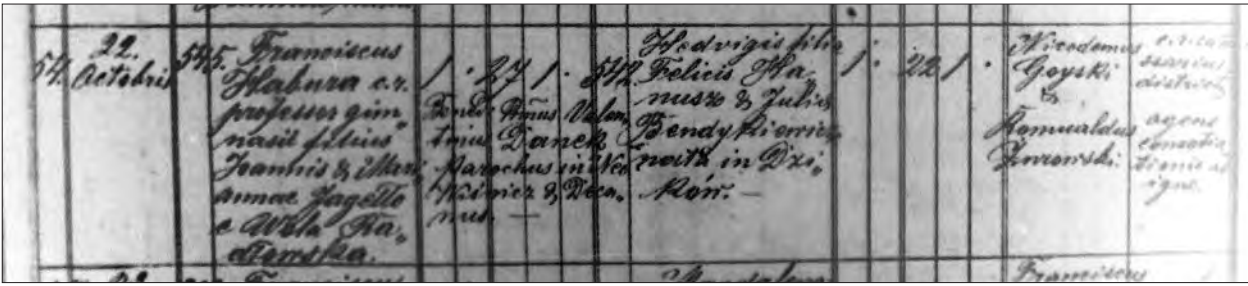 54.
22.
Octobris
545.
Franciscus
Habura c. r.
professor gim„
nasii filius
Joannis & Mari
annae Jagełło
e Wola Ra„
dłowska.
1 · 27 1 ·
Bened. Rmus Valen„
tinus Danek
parochus in
Wiśnicz & Deca„
nus. —
542.
Hedvigis filia
Felicis Ha„
nusz & Julie
Bendykiewicz
nata in Dzi„
ków. —
1 · 22 1 ·
Nicodemus
Goyski
&
Romualdus
Żurowski
ssarius
district.
agens
Franciscus
Magdalena
Franciscus